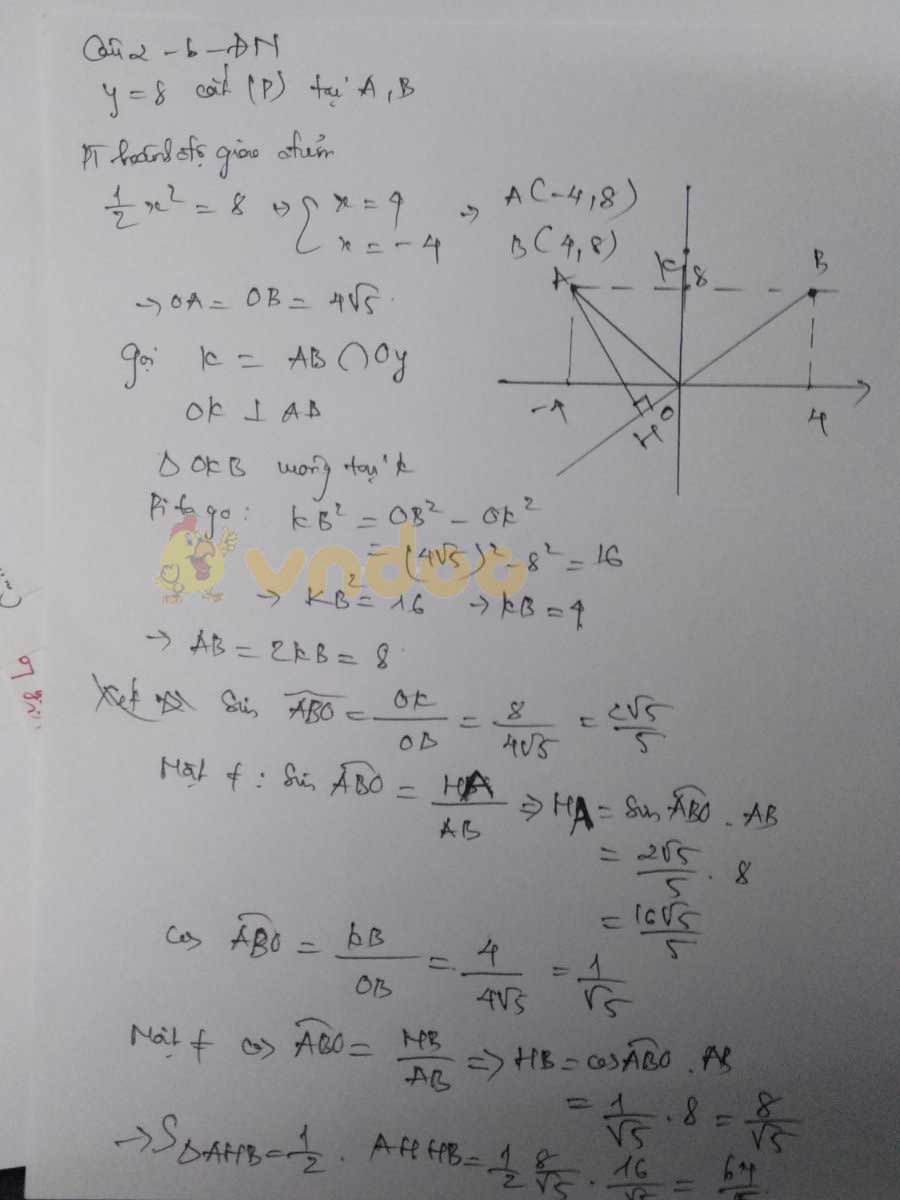 Câu 2 - b - ĐN
y = 8 cắt (P) tại A, B
PT hoành độ giao điểm
1/2 x² = 8 ⇔ { x = 4
x = -4
→ A(-4, 8)
B(4, 8)
→ OA = OB = 4√5.
Gọi K = AB ∩ Oy
OK ⊥ AB
Δ OKB vuông tại K
Pi ta go: KB² = OB² - OK²
= (4√5)² - 8² = 16
→ KB² = 16 → KB = 4
→ AB = 2KB = 8
Sin ABO = OK/OB = 8/4√5 = 2√5/5
Mặt ≠: Sin ABO = HA/AB ⇒ HA = Sin ABO . AB
= 2√5/5 . 8
= 16√5/5
Cos ABO = KB/OB = 4/4√5 = 1/√5
Mặt ≠ cos ABO = HB/AB ⇒ HB = cos ABO . AB
= 1/√5 . 8 = 8/√5
→ SΔAHB = 1/2 . AH HB = 1/2 8/√5 . 16/√5 = 64/5
A
K
8
B
-4
H
O
4
vndoc